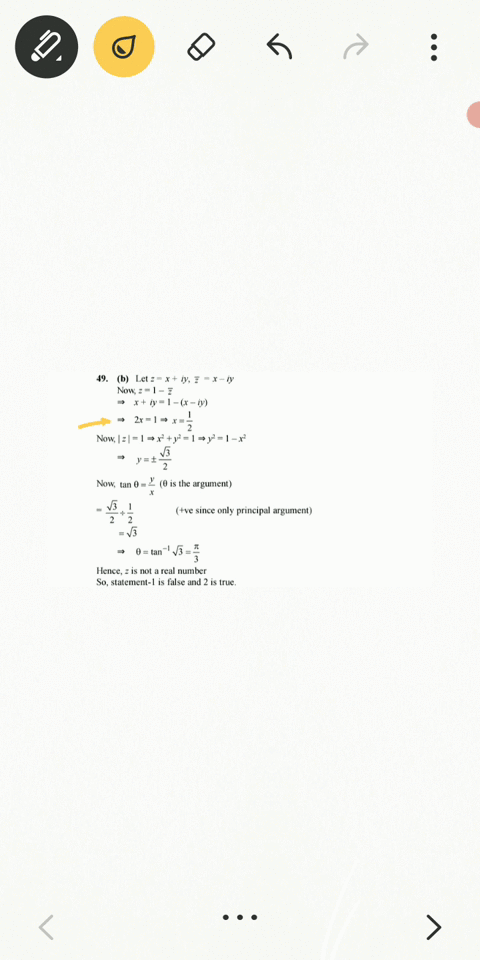 49. (b) Let z = x + iy, z̅ = x – iy
Now, z = 1 – z̅
⇒ x + iy = 1 – (x – iy)
⇒ 2x = 1 ⇒ x = 1/2
Now, | z | = 1 ⇒ x² + y² = 1 ⇒ y² = 1 – x²
⇒ y = ± √3/2
Now, tan θ = y/x (θ is the argument)
= √3/2 ÷ 1/2 (+ve since only principal argument)
= √3
⇒ θ = tan⁻¹ √3 = π/3
Hence, z is not a real number
So, statement-1 is false and 2 is true.